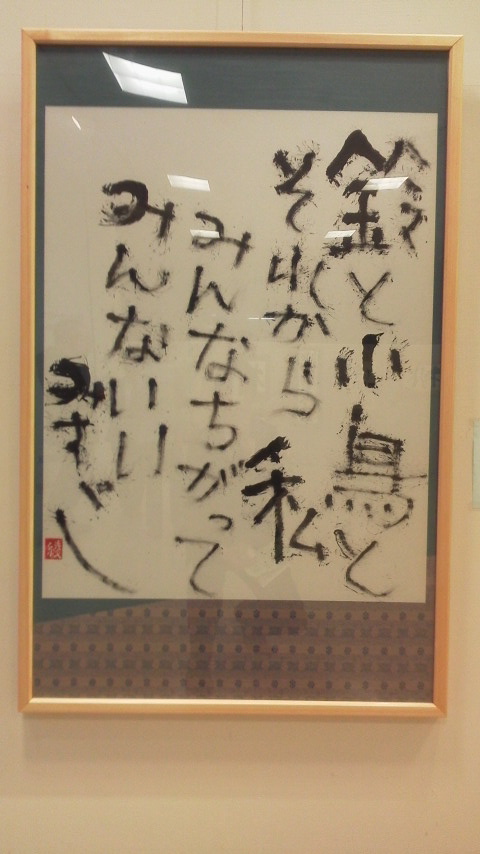 鈴と小鳥と
それから私
みんなちがって
みんないい
みすゞ